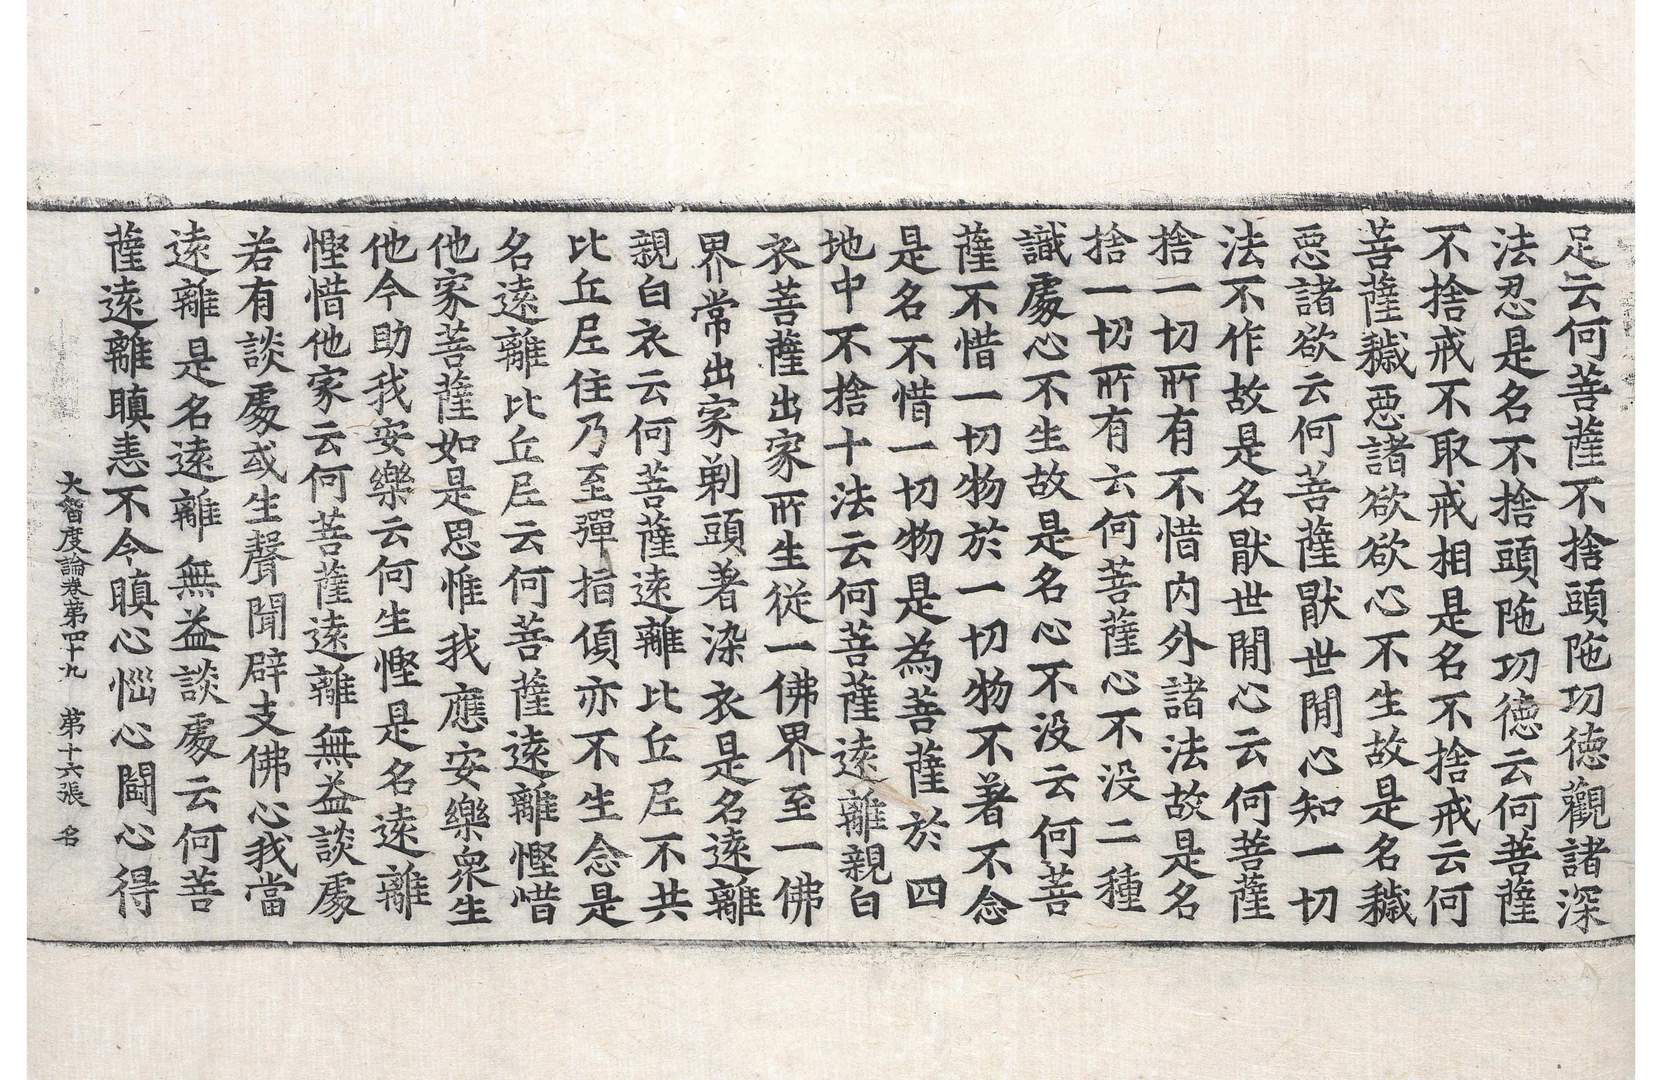 足云何菩薩不捨頭陁功德觀諸深
法忍是名不捨頭陁功德云何菩薩
不捨戒不取戒相是名不捨戒云何
菩薩穢惡諸欲欲心不生故是名穢
惡諸欲云何菩薩猒世閒心知一切
法不作故是名猒世閒心云何菩薩
捨一切所有不惜内外諸法故是名
捨一切所有云何菩薩心不没二種
識處心不生故是名心不没云何菩
薩不惜一切物於一切物不著不念
是名不惜一切物是為菩薩於四
地中不捨十法云何菩薩遠離親白
衣菩薩出家所生從一佛界至一佛
界常出家剃頭著染衣是名遠離
親白衣云何菩薩遠離比丘尼不共
比丘尼住乃至彈指頃亦不生念是
名遠離比丘尼云何菩薩遠離慳惜
他家菩薩如是思惟我應安樂衆生
他今助我安樂云何生慳是名遠離
慳惜他家云何菩薩遠離無益談處
若有談處或生聲聞辟支佛心我當
遠離是名遠離無益談處云何菩
薩遠離瞋恚不令瞋心惱心鬪心得
大智度論卷第四十九　第十六張　名